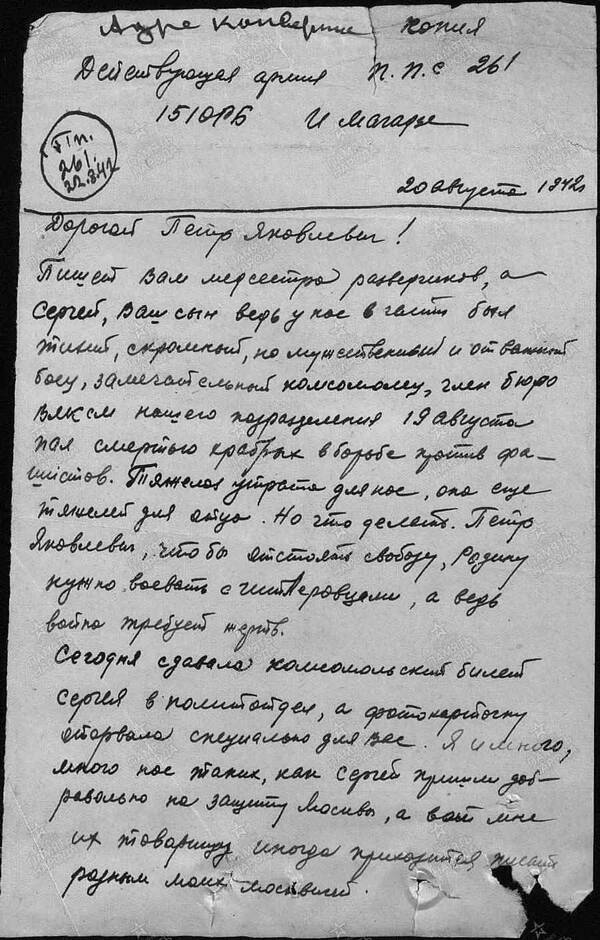 Адре конверта копия
Действующая армия п.п.с 261
151ОРБ И Магарде
П п.
261.
22.8.42
20 августа 1942г
Дорогой Петр Яковлевич!
Пишет Вам медсестра разведчиков, а
Сергей, Ваш сын ведь у нас в части был
тихий, скромный, но мужественный и отважный
боец, замечательный комсомолец, член бюро
ВЛКСМ нашего подразделения 19 августа
пал смертью храбрых в борьбе против фа-
шистов. Тяжелая утрата для нас, она еще
тяжелей для отца. Но что делать. Петр
Яковлевич, чтобы отстоять свободу, Родину
нужно воевать с гитлеровцами, а ведь
война требует жертв.
Сегодня сдавала комсомольский билет
Сергея в политотдел, а фотокарточку
оторвала специально для Вас. Я и много,
много нас таких, как Сергей пришли доб-
равольно на защиту Москвы, а вот мне
их товарищу иногда приходится писать
родным моих москвичей.